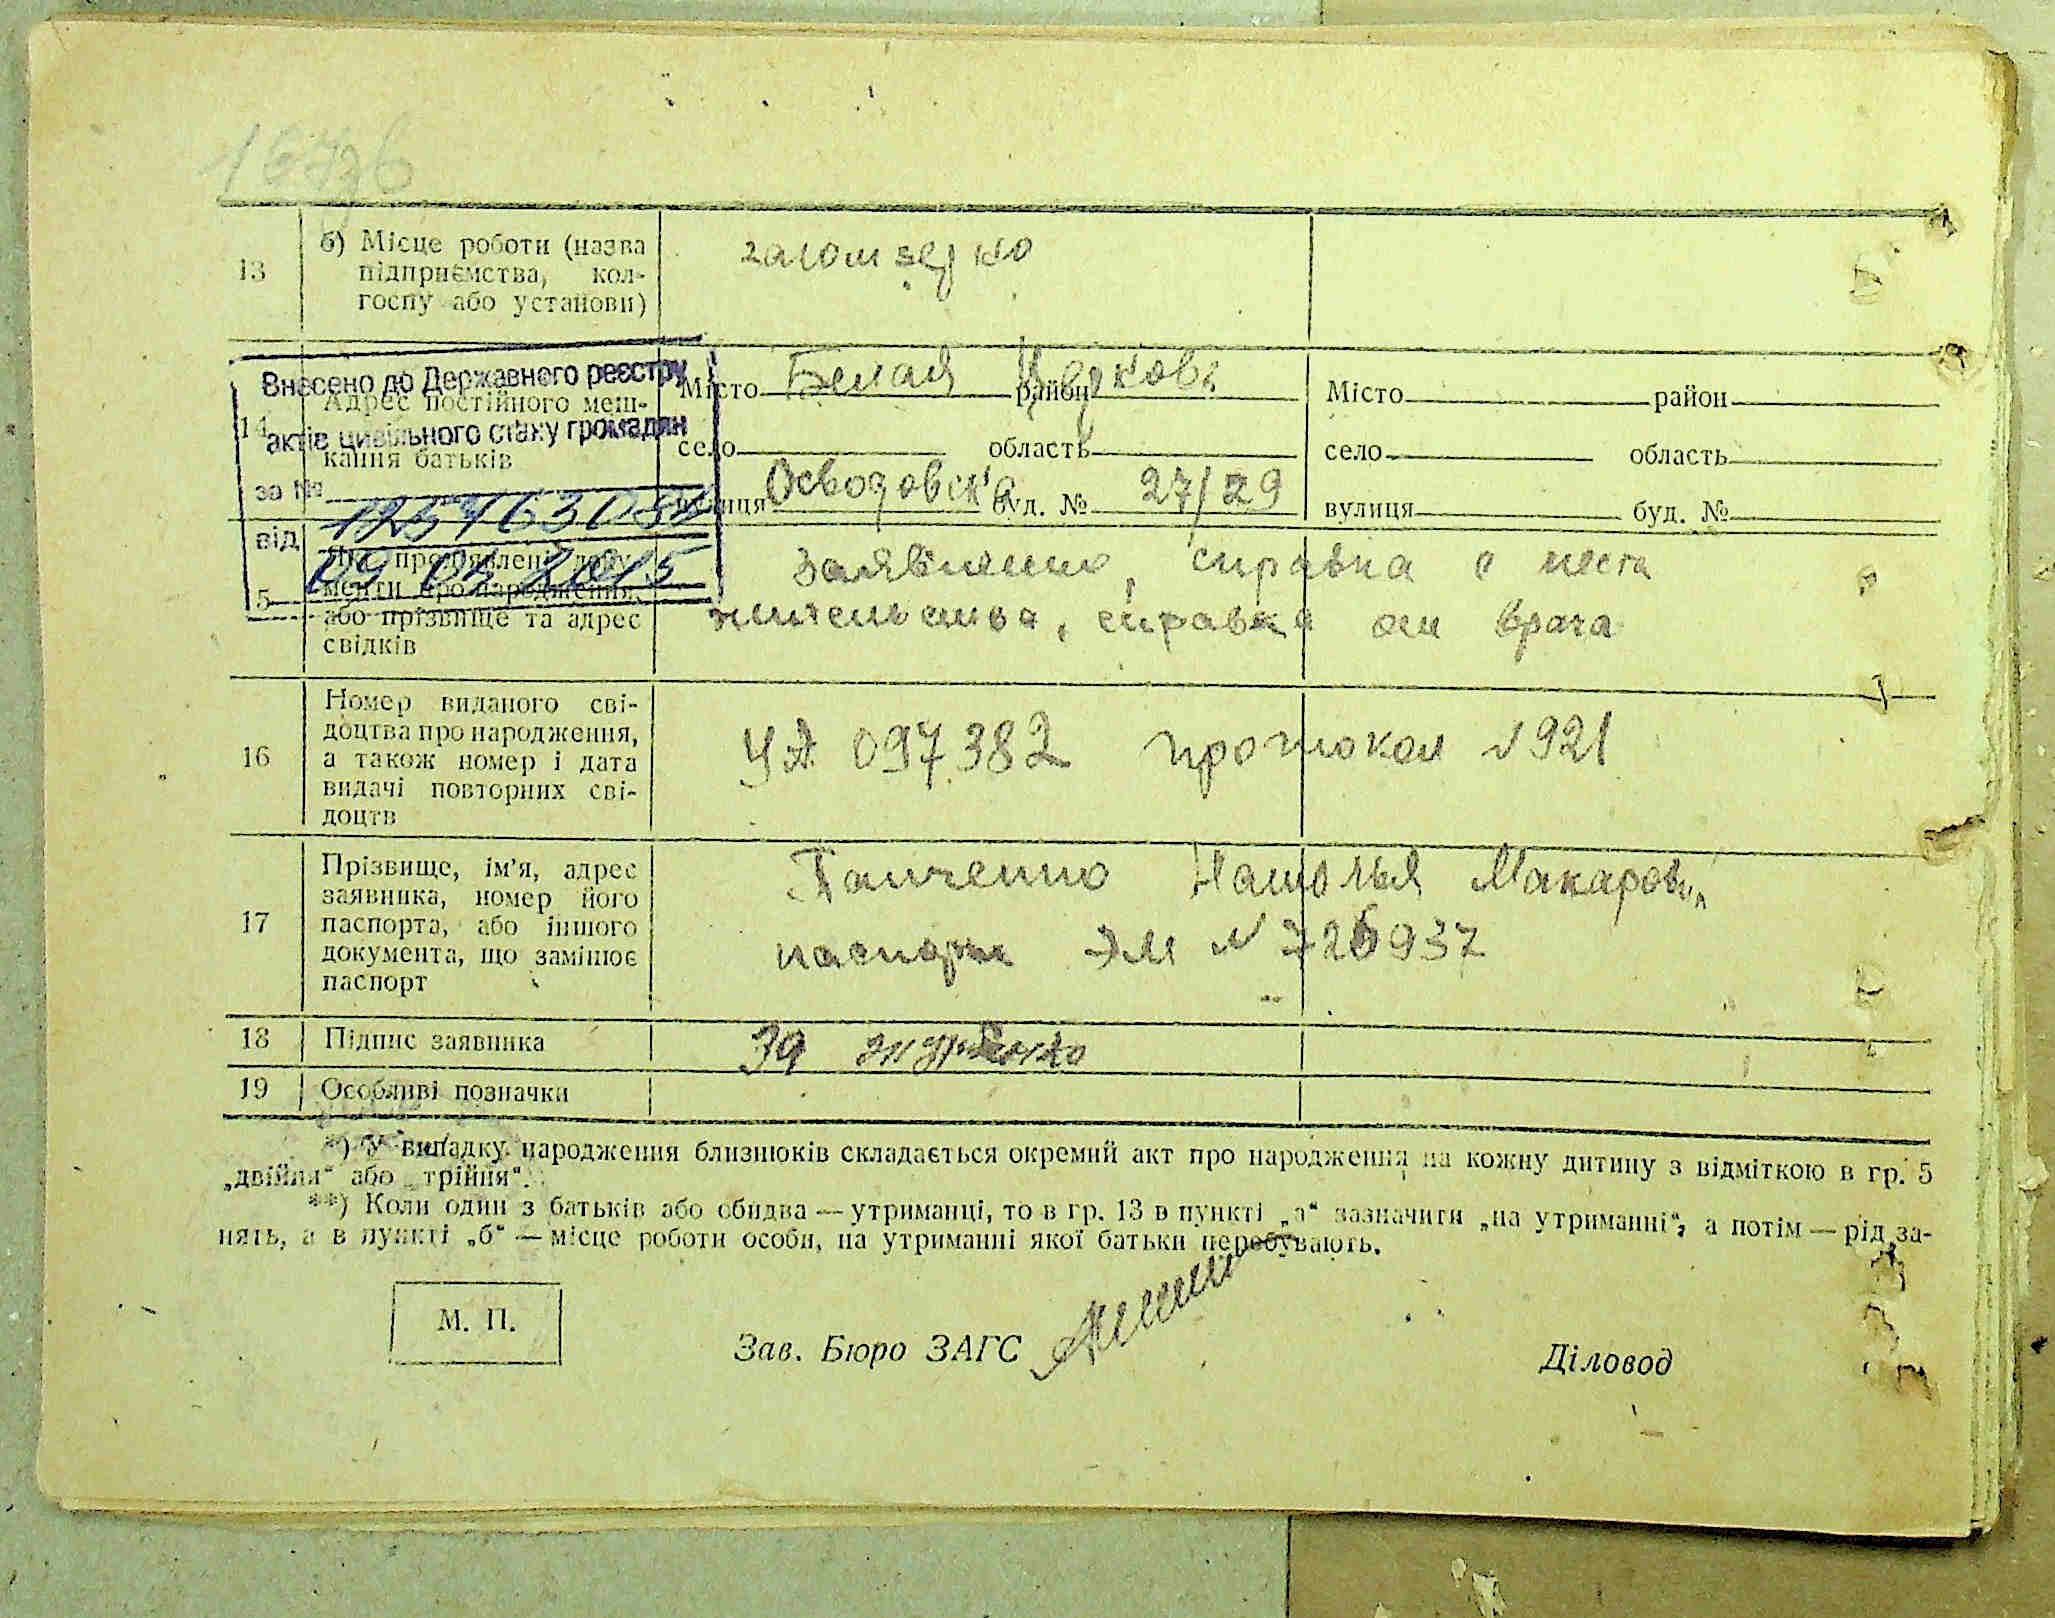 13
б) Місце роботи (назва
підприємства, кол-
госпу або установи)
14
Адрес постійного меш-
кання батьків
Внесено до Державного реєстру
актів цивільного стану громадян
за №
від 2015
Місто Белая Церковь район
село область
вулиця буд. № 27/29
Місто район
село область
вулиця буд. №
5
Які пред'явлені доку-
менти про народження,
або прізвище та адрес
свідків
заявление, справка с места
жительства, справка от врача
16
Номер виданого сві-
доцтва про народження,
а також номер і дата
видачі повторних сві-
доцтв
УА 097382 протокол N 921
17
Прізвище, ім'я, адрес
заявника, номер його
паспорта, або іншого
документа, що замінює
паспорт
Панченко Наталья Макаров
паспорт ЭМ N 726937
18
Підпис заявника
19
Особливі позначки
*) У випадку народження близнюків складається окремий акт про народження на кожну дитину з відміткою в гр. 5
„двійня“ або „трійня“.
**) Коли один з батьків або обидва — утриманці, то в гр. 13 в пункті „а“ зазначити „на утриманні“, а потім — рід за-
нять, а в пункті „б“ — місце роботи особи, на утриманні якої батьки перебувають.
М. П.
Зав. Бюро ЗАГС
Діловод